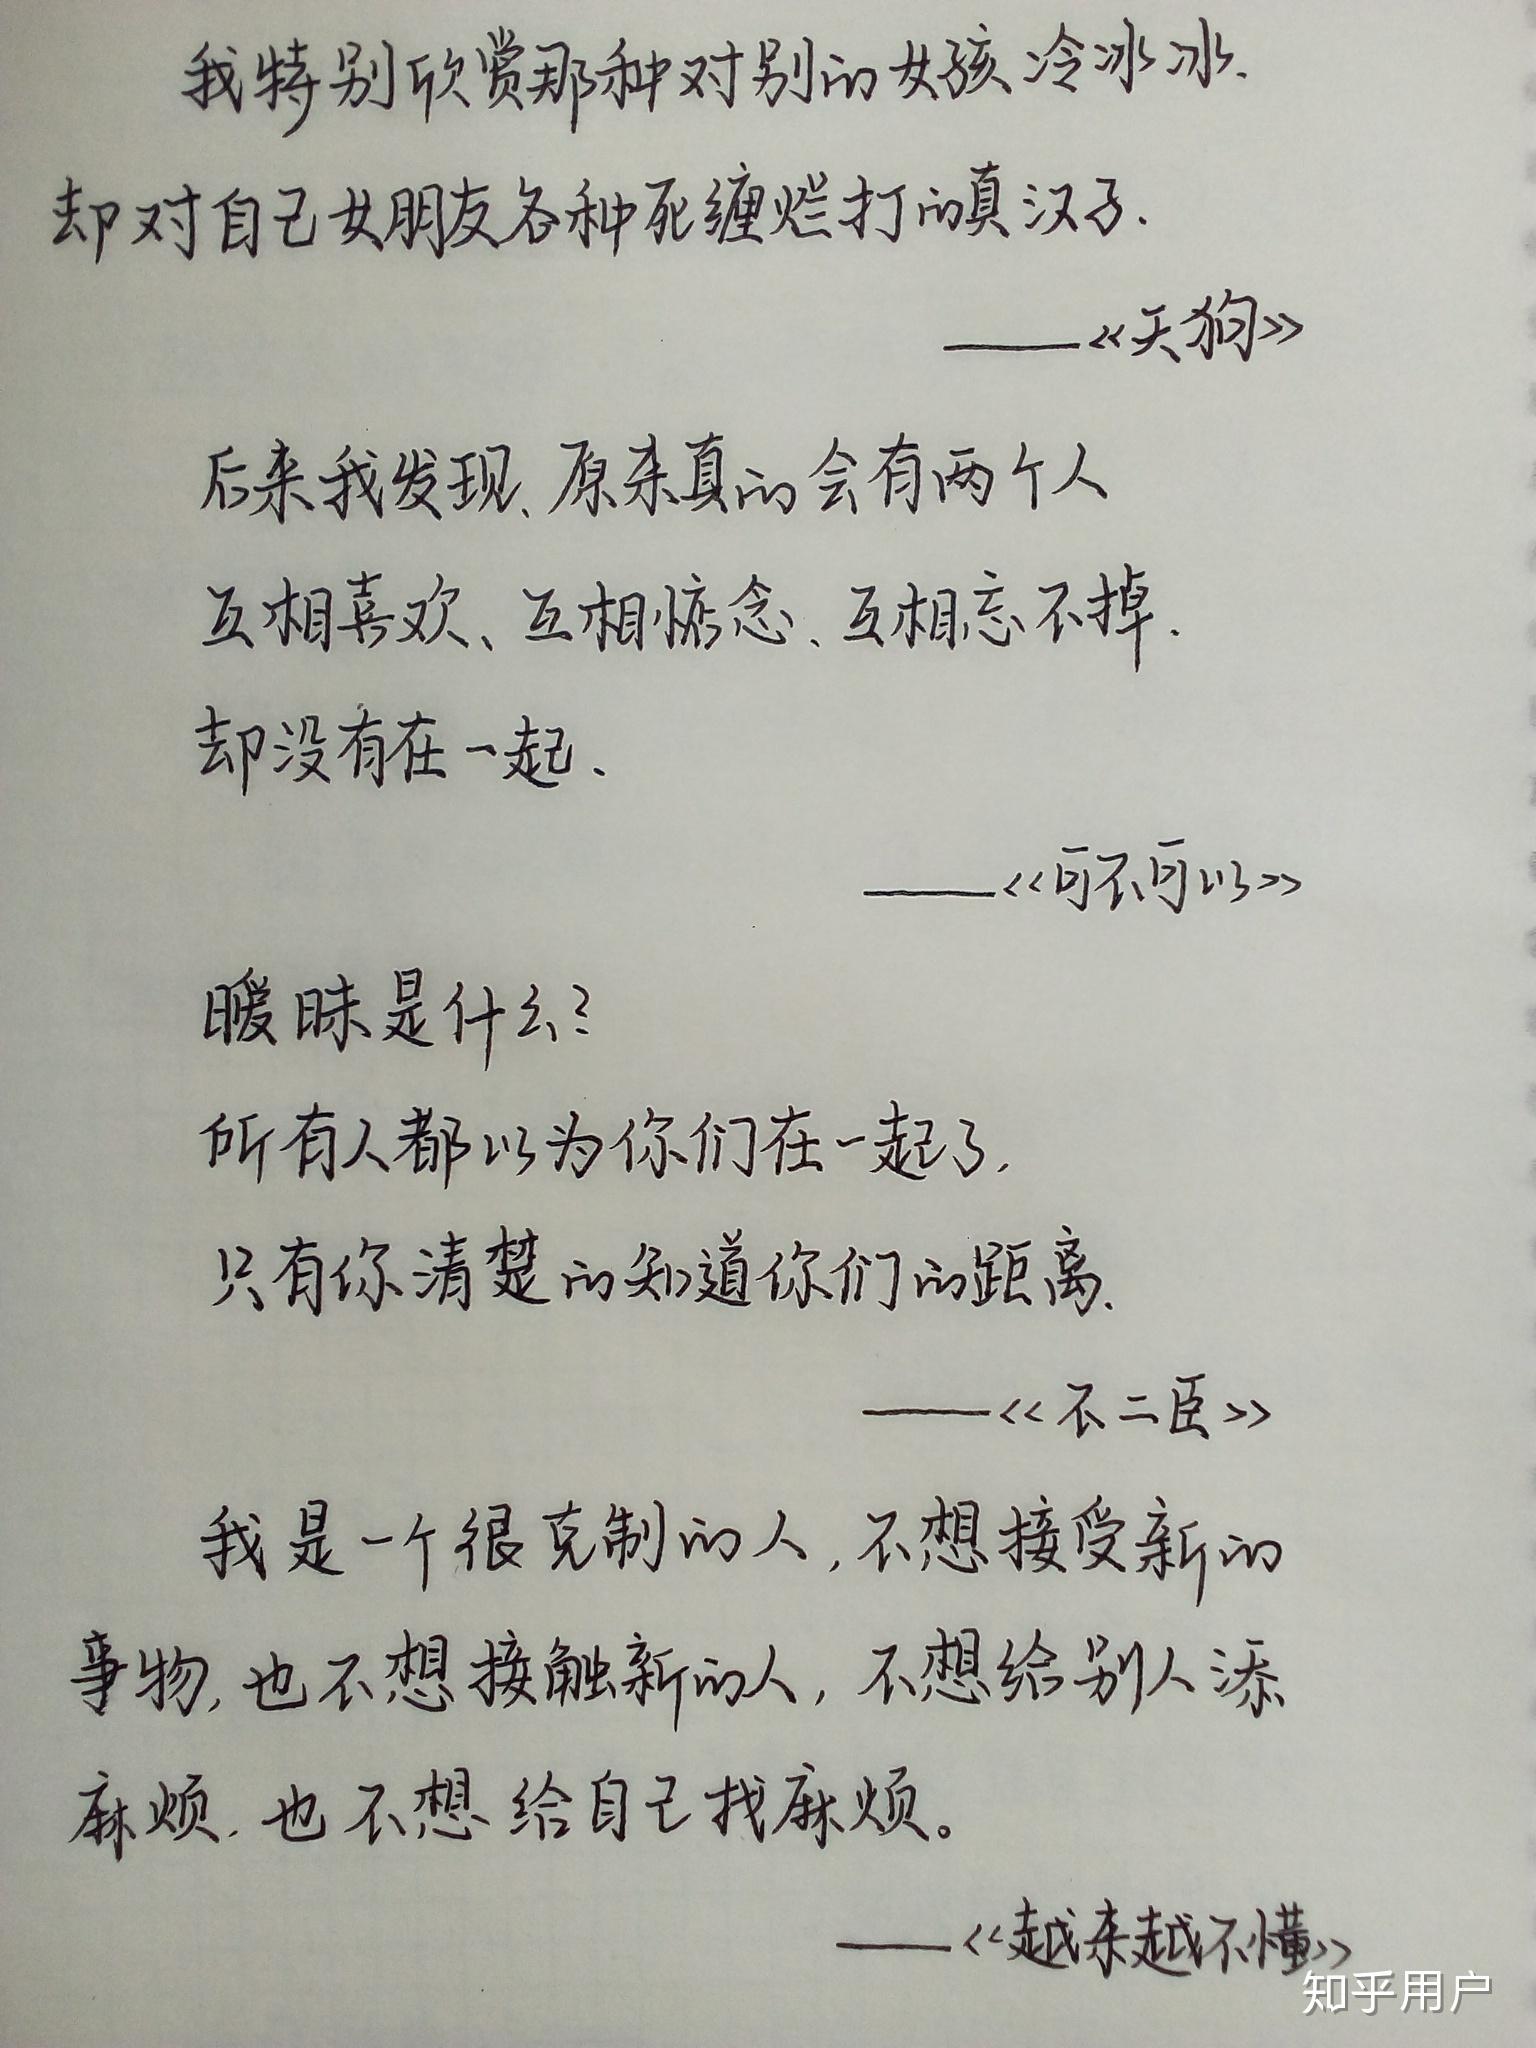 我特别欣赏那种对别的女孩冷冰冰.
却对自己女朋友各种死缠烂打的真汉子.
——《天狗》
后来我发现、原来真的会有两个人
互相喜欢、互相惦念、互相忘不掉.
却没有在一起.
——《可不可以》
暧昧是什么?
所有人都以为你们在一起了.
只有你清楚的知道你们的距离.
——《不二臣》
我是一个很克制的人,不想接受新的
事物,也不想接触新的人,不想给别人添
麻烦.也不想给自己找麻烦。
——《越来越不懂》
知乎用户